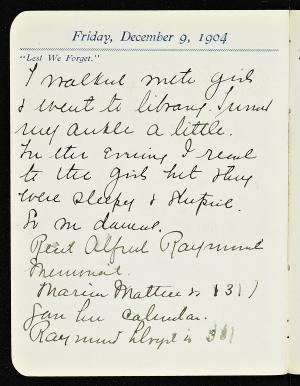 Friday, December 9, 1904
"Lest We Forget."
I walked with girls
& went to library. Turned
my ankle a little.
In the evening I read
to the girls but they
were sleepy & stupid.
So I'm
Read Alfred Raymond
Memorial.
Marion 131)
Gen calendar.
Raymond is 311